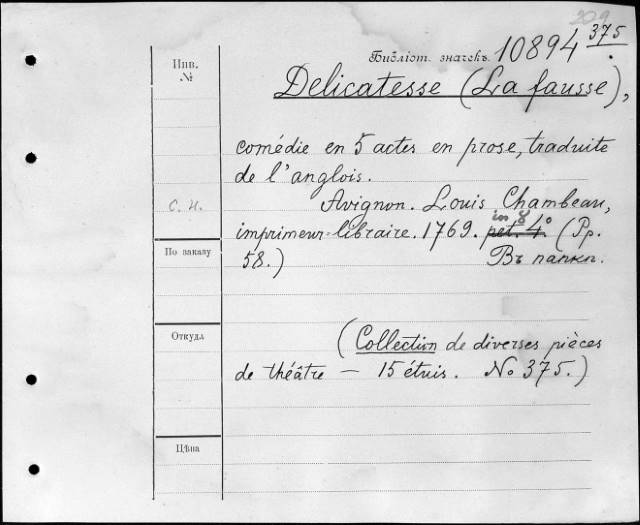 209
Инв.
№
Библіот. значекъ 10894 375
Delicatesse (La fausse),
comédie en 5 actes en prose, traduite
de l'anglois.
Avignon. Louis Chambeau,
С. И.
in 8
imprimeur-libraire. 1769. pet. 4° (Pp.
По заказу
58.) Въ папкѣ.
Откуда
(Collection de diverses pièces
de théâtre — 15 étuis. No 375.)
Цѣна